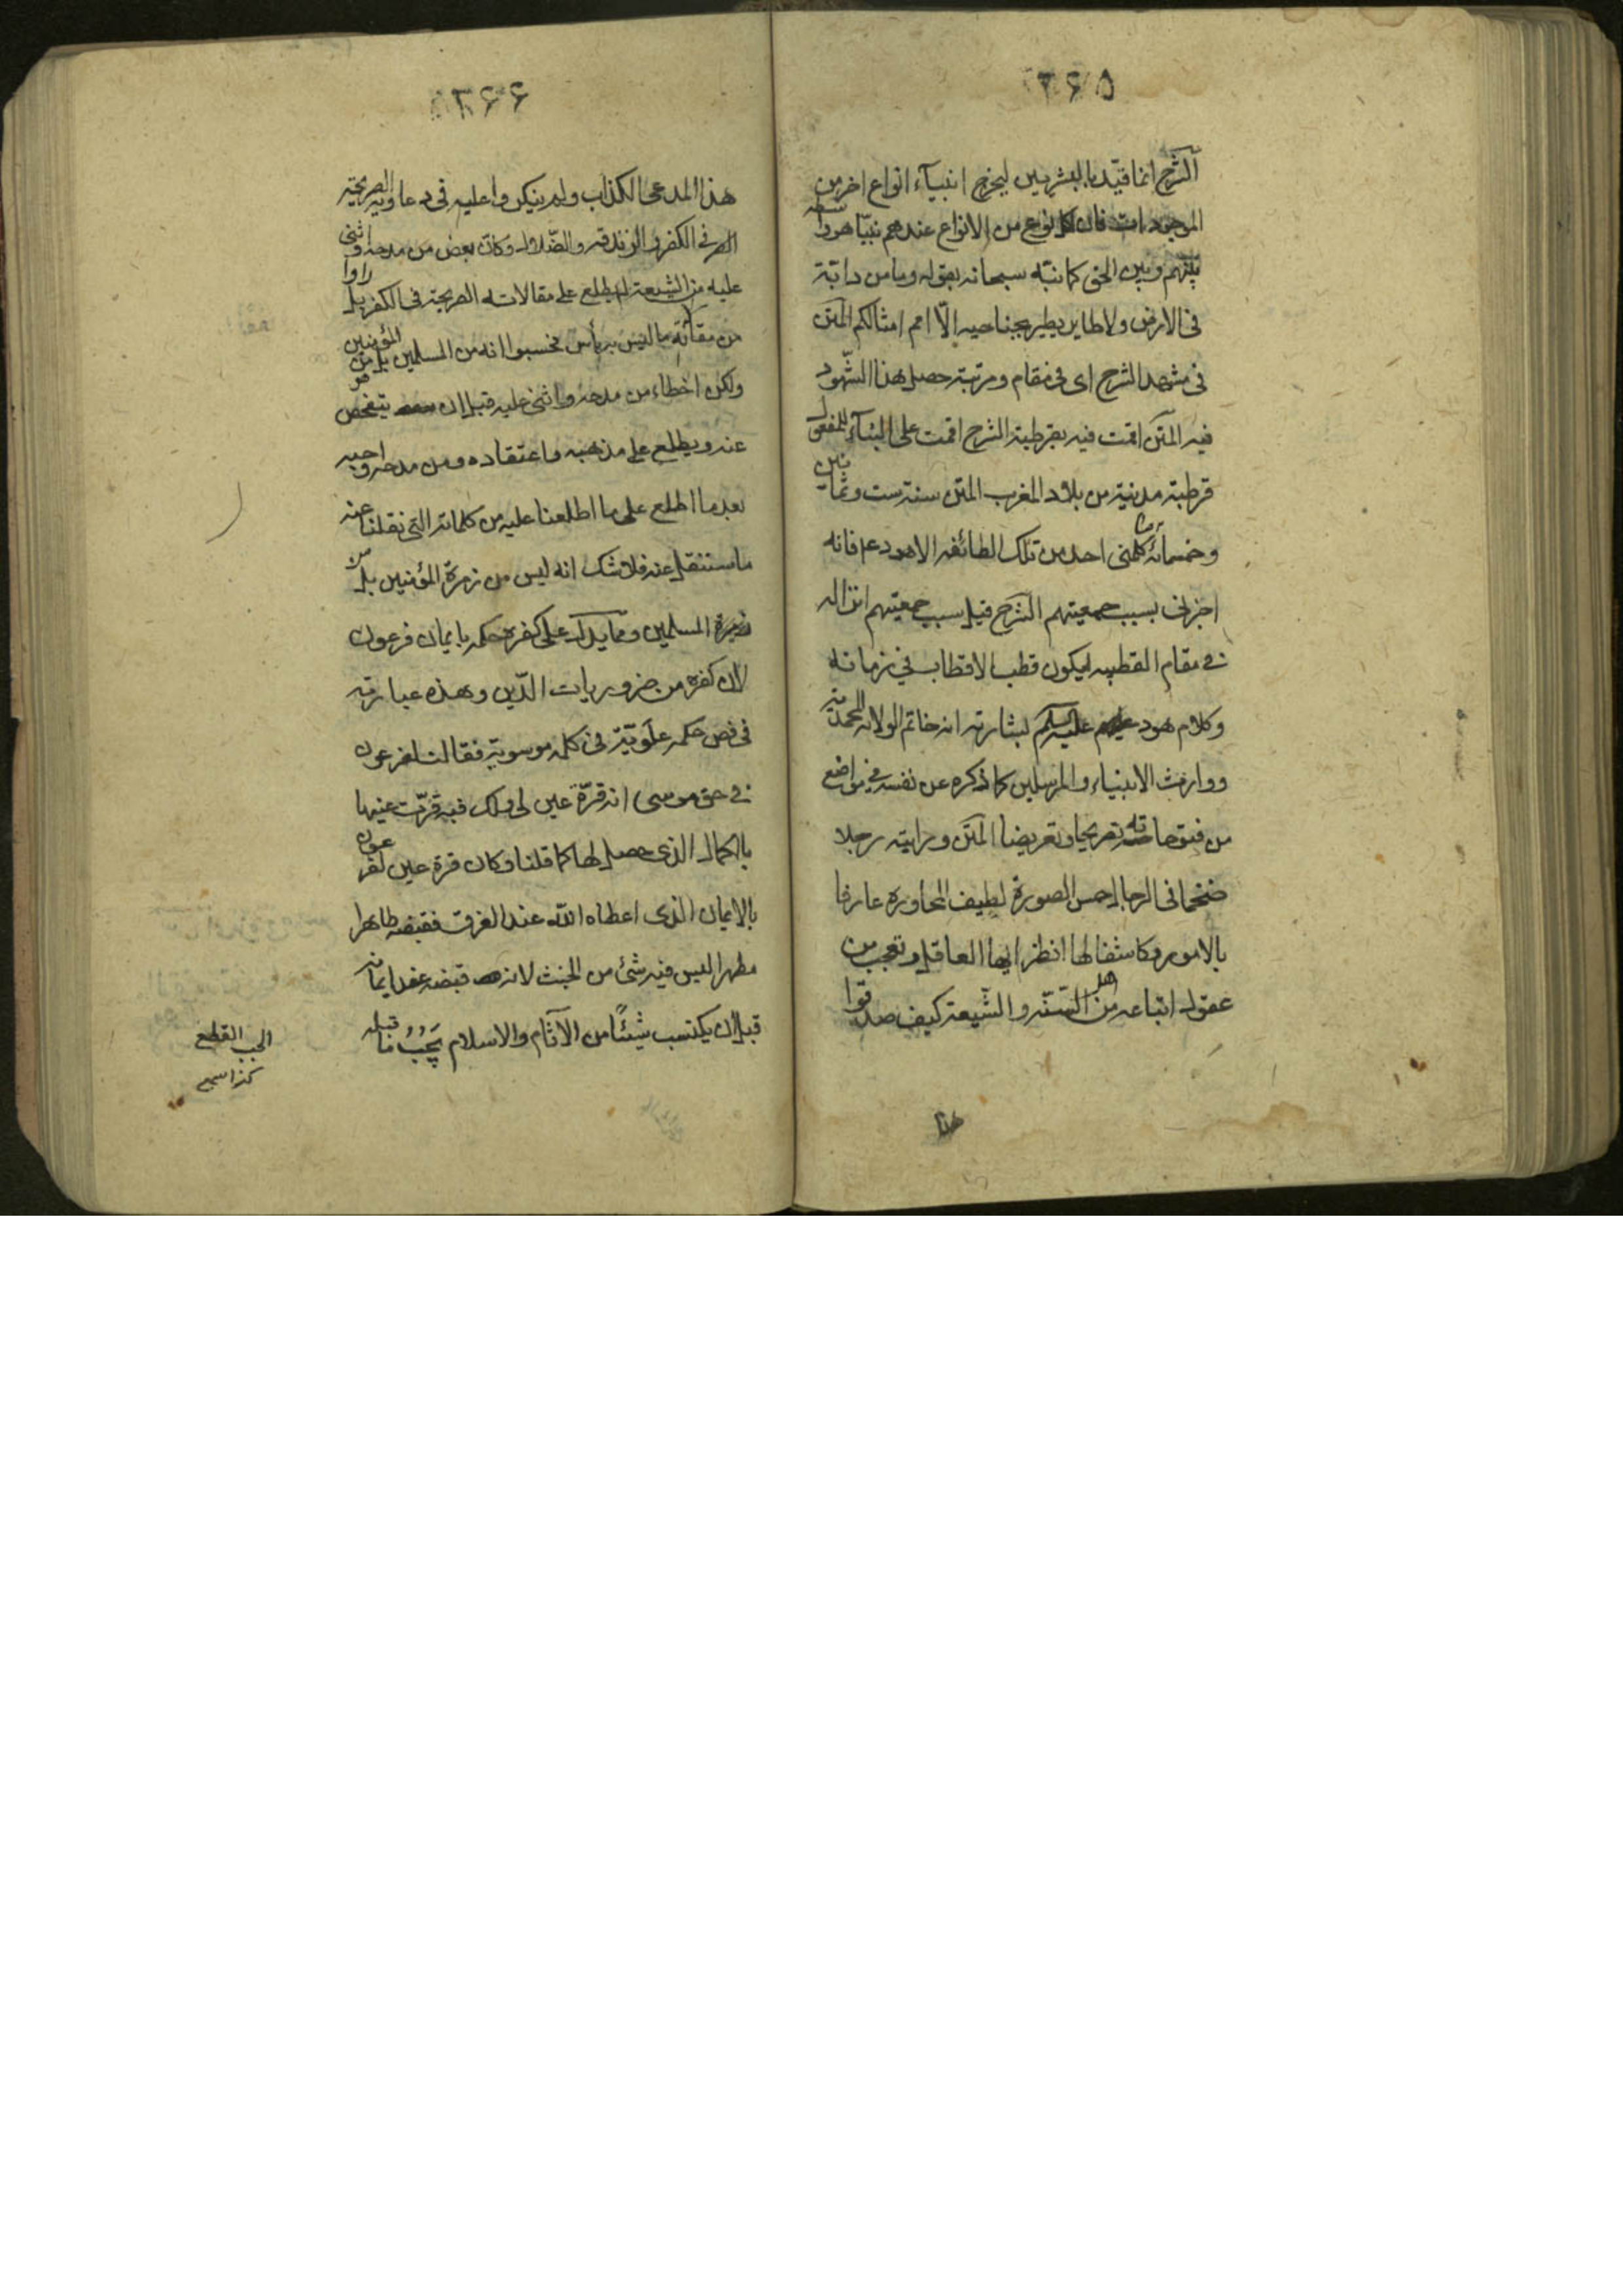 ۲۶۵
الشرح انما قيّد بالبشريين ليخرج انبيآء انواع اخر من
الموجودات فان لكل نوع من الانواع عندهم نبيّا هو واسطة
بينهم وبين الحق كما نبّه سبحانه بقوله وما من دابّة
في الارض ولا طاير يطير بجناحيه الّا امم امثالكم المتن
في مشهد الشرح اى في مقام ومرتبة حصل هذا الشّهود
فيه المتن اقمت فيه بقرطبة الشرح اقمت على البنآء للمفعول
قرطبة مدينة من بلاد المغرب المتن سنة ست وثمانين
وخمسمائة ما كلمنى احد من تلك الطائفة الا هود عم فانه
اخبرنى بسبب جمعيتهم الشرح قيل سبب جمعيتهم انزاله
في مقام القطبيه ليكون قطب الاقطاب في زمانه
وكلام هود عليه السلم لبشارته انه خاتم الولاية المحمدية
ووارث الانبياء والمرسلين كما ذكره عن نفسه في مواضع
من فتوحاته تصريحا وتعريضا المتن ورايته رجلا
ضخما في الرجال حسن الصورة لطيف المحاورة عارفا
بالامور وكاشفا لها انظر ايها العاقل وتعجب من
عقول اتباعه من اهل السّنّه والشّيعة كيف صدقوا
هذا
۲۶۶
هذا المدعى الكذاب ولم ينكروا عليه في دعاويه الصريحة
في الكفر والزندقه والضّلال وكانّ بعض من مدحه واثنى
عليه من الشيعة لم يطلع على مقالاته الصريحة في الكفر بل راوا
من مقالاته ما ليس به بأس فحسبوا انه من المسلمين بل من المؤمنين
ولكن اخطاء من مدحه واثنى عليه قبل ان يتفحص
عنه ويطلع على مذهبه واعتقاده ومن مدحه واحبه
بعد ما اطلع على ما اطلعنا عليه من كلماته التى نقلنا عنه
ما سننقل عنه فلا شك انه ليس من زمرة المؤمنين بل من
زمرة المسلمين ومما يدل على كفره حكمه بايمان فرعون
لان كفره من ضروريات الدّين وهذه عبارته
في فص حكمه علَويّة في كلمه موسوية فقالت لفرعون
في حق موسى انه قرّة عين لى ولك فبه قرّت عينها
بالكمال الذى حصل لها كما قلنا وكان قرة عين لفرعون
بالايمان الذى اعطاه الله عند الغرق فقبضه طاهرا
مطهرا ليس فيه شئ من الخبث لانه قبضه عند ايمانه
قبل ان يكتسب شيئًا من الآثام والاسلام يَجُبُّ ما قبله
الجب القطع